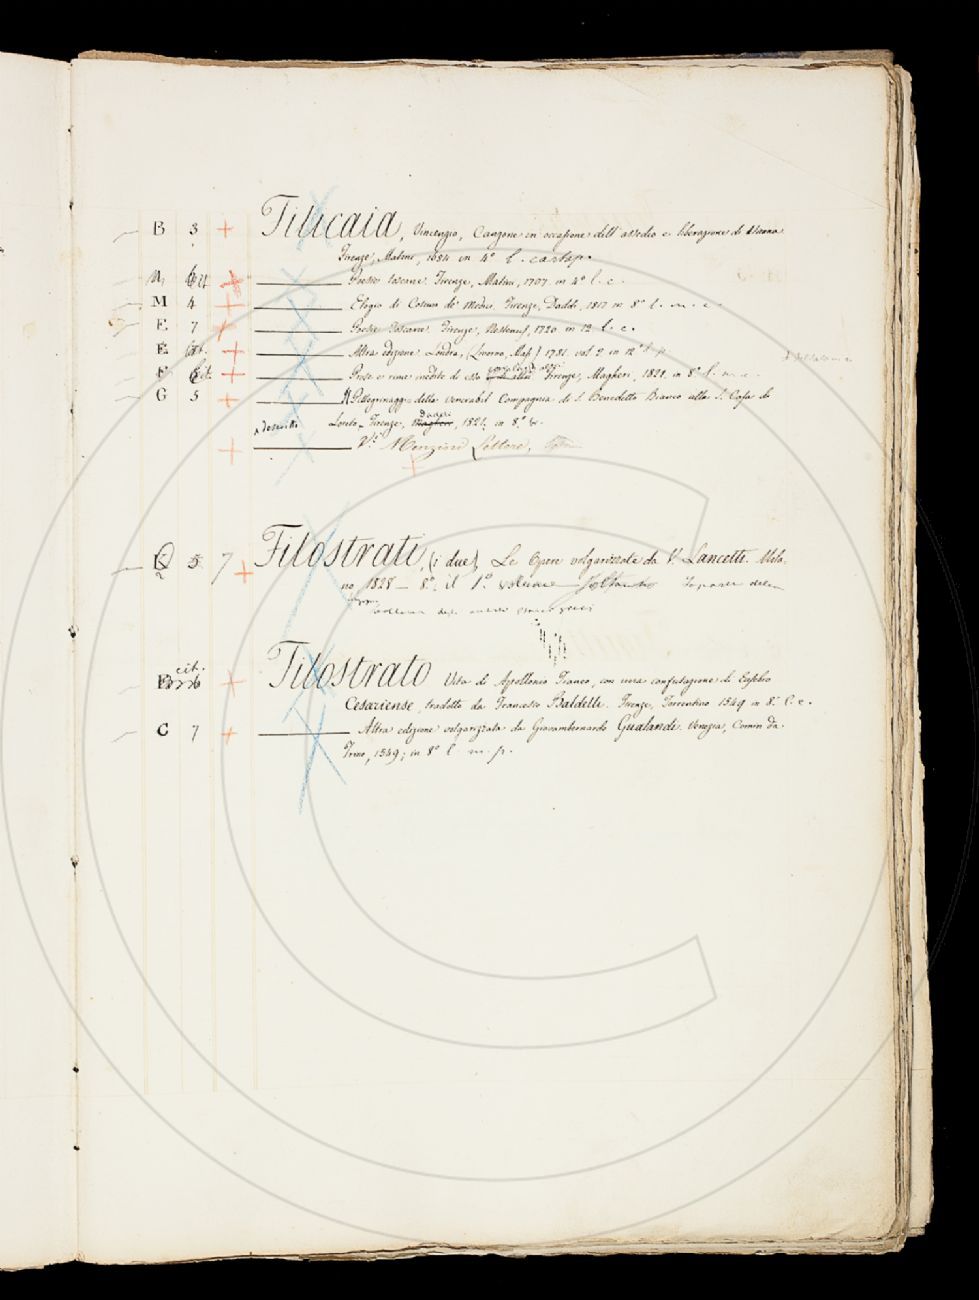 B 3 + Filicaia, Vincenzio, Canzone in occasione dell' assedio e liberazione di Vienna
Firenze, Matini, 1684 in 4º l. cartap.
M + Poesie toscane. Firenze, Matini, 1707 in 4º l. c.
M 4 + Elogio di Cosimo de' Medici. Firenze, Daddi, 1817 in 8º l. m. c.
E 7 + Poesie Toscane. Firenze, 1720 in 12 l. c.
E cit. + Altra edizione Londra, (Livorno, Masi) 1781. vol. 2 in 12º l. p.
E cit. + Prose e rime inedite di esso ed altri Firenze, Magheri, 1821. in 8º l. m. c.
G 5 + Pellegrinaggi della venerabil Compagnia di S. Benedetto Bianco alla S. Casa di
descritti Loreto. Firenze, Magheri, 1821. in 8º br.
+ V. Menzini Lettere,
+
5 7 + Filostrati, (i due) Le Opere volgarizzate da V. Lancetti. Mila-
no 1828 — 8º. il 1º. volume

cit. + Filostrato Vita di Apollonio Tianeo, con una confutazione di Eusebio
Cesariense, tradotta da Francesco Baldelli. Firenze, Torrentino 1549 in 8º l. c.
C 7 + Altra edizione volgarizzata da Giovambernardo Gualandi. Venezia, Comin da
Trino, 1549; in 8º l. m. p.